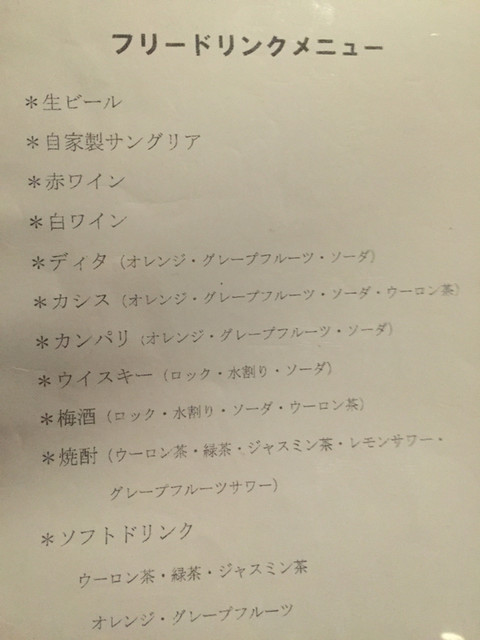 フリードリンクメニュー
＊生ビール
＊自家製サングリア
＊赤ワイン
＊白ワイン
＊ディタ（オレンジ・グレープフルーツ・ソーダ）
＊カシス（オレンジ・グレープフルーツ・ソーダ・ウーロン茶）
＊カンパリ（オレンジ・グレープフルーツ・ソーダ）
＊ウイスキー（ロック・水割り・ソーダ）
＊梅酒（ロック・水割り・ソーダ・ウーロン茶）
＊焼酎（ウーロン茶・緑茶・ジャスミン茶・レモンサワー・
グレープフルーツサワー）
＊ソフトドリンク
ウーロン茶・緑茶・ジャスミン茶
オレンジ・グレープフルーツ